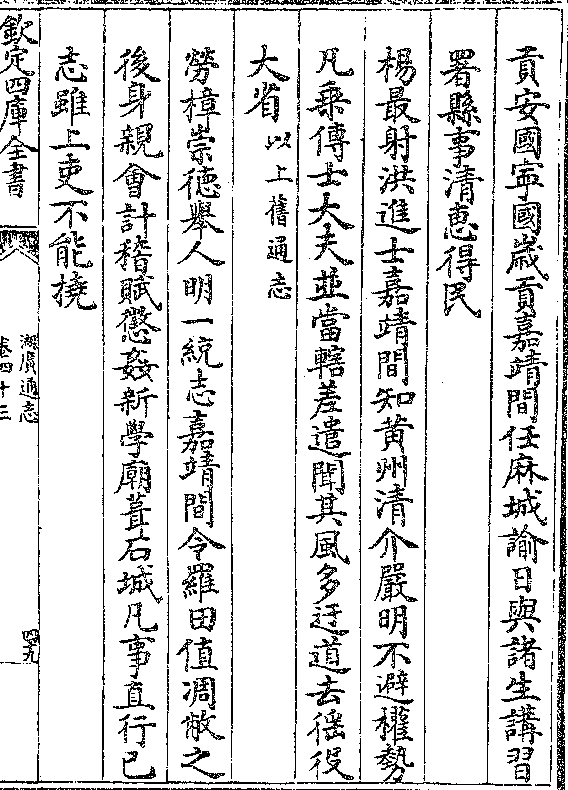 貢安國寜國嵗貢嘉靖間任麻城諭日與諸生講習
署縣事清惠得民
楊最射洪進士嘉靖間知黄州清介嚴明不避權勢
凡乗傳士大夫並當轄差遣聞其風多迂道去徭役
大省以上舊通志
勞樟崇徳舉人明一統志嘉靖間令羅田值凋敝之
後身親會計稽賦懲姦新學廟葺石城凡事直行已
志雖上吏不能撓
欽定四庫全書
湖廣通志
卷四十三
四九